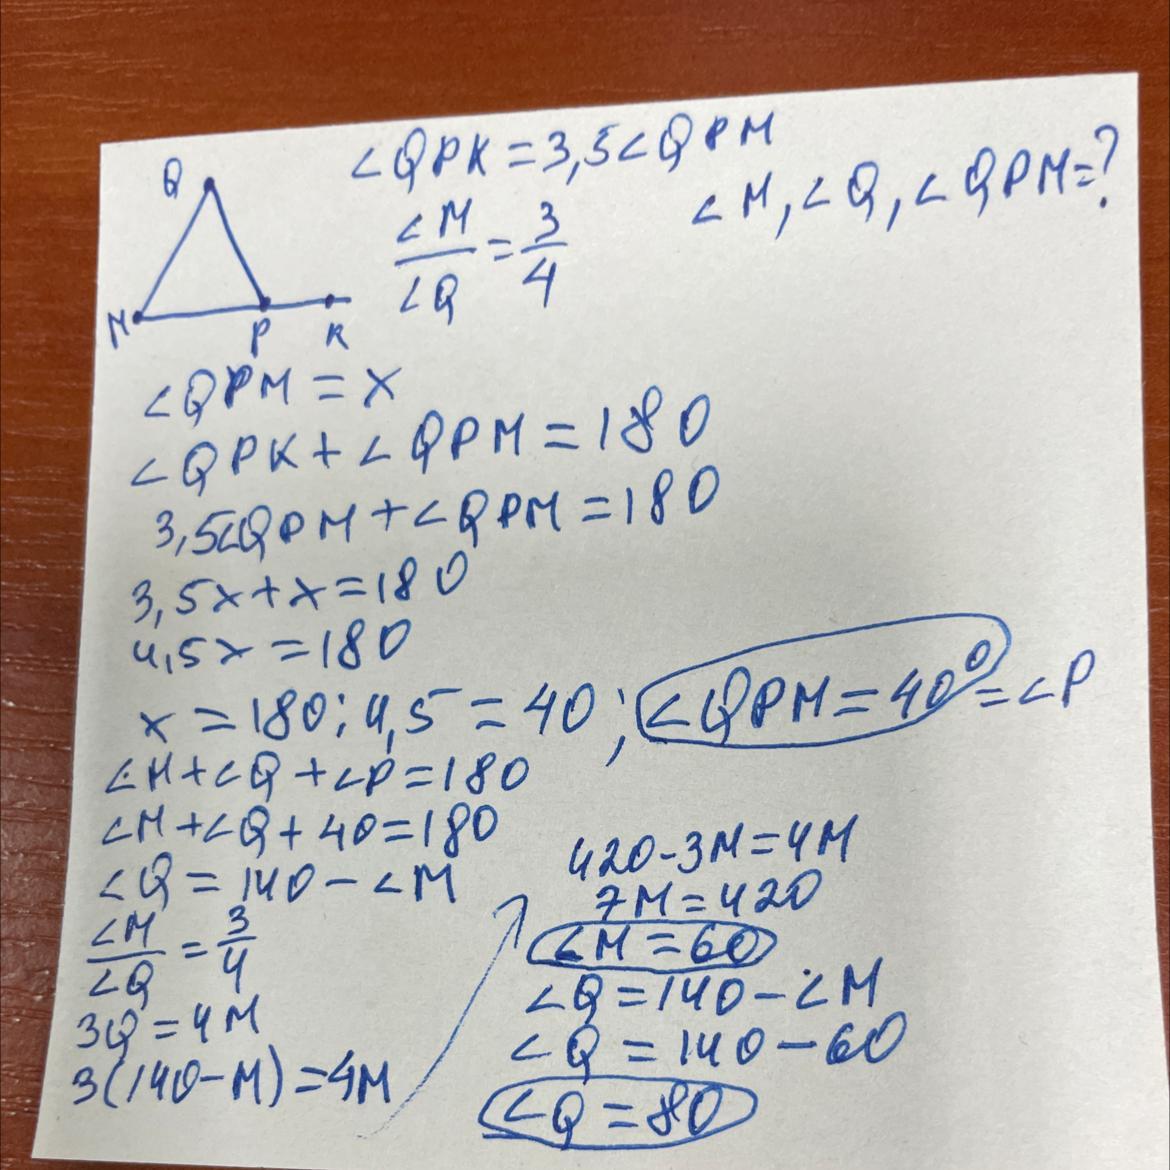 Q
M
P
K
∠QPK=3,5∠QPM
∠M/∠Q=3/4
∠M,∠Q,∠QPM=?
∠QPM=x
∠QPK+∠QPM=180
3,5∠QPM+∠QPM=180
3,5x+x=180
4,5x=180
x=180:4,5=40; ∠QPM=40°=∠P
∠M+∠Q+∠P=180
∠M+∠Q+40=180
∠Q=140-∠M
∠M/∠Q=3/4
3Q=4M
3(140-M)=4M
420-3M=4M
7M=420
∠M=60
∠Q=140-∠M
∠Q=140-60
∠Q=80